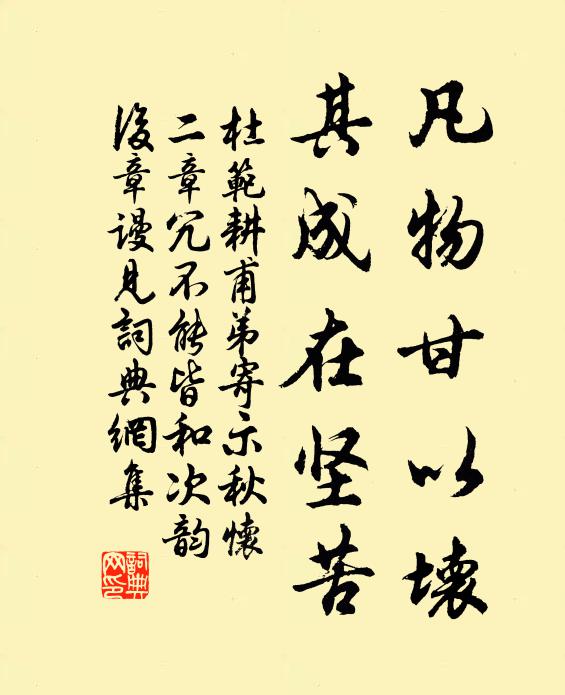 凡物甘以壊
其成在坚苦
杜範耕甫弟寄示秋懷
二章冗不能皆和次韵
後章谩見詞典網集
詞典网印